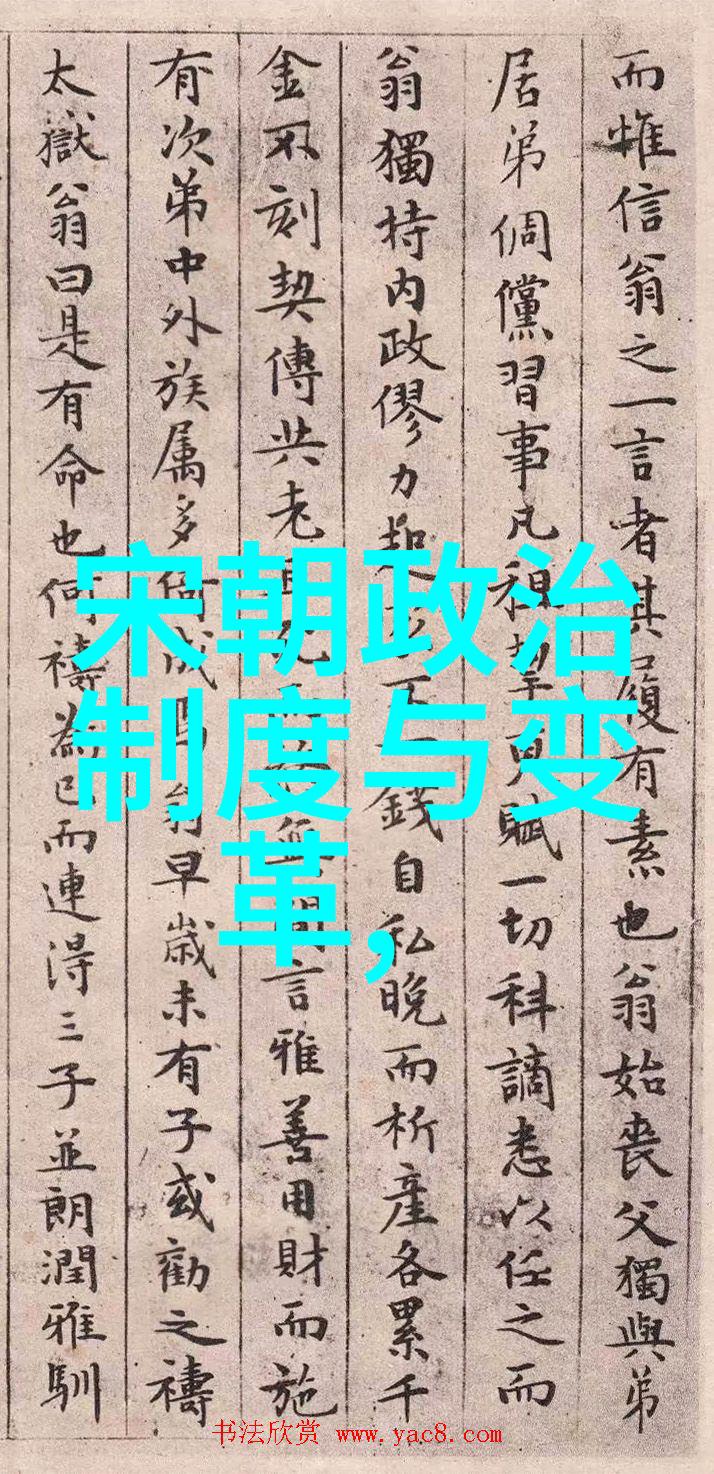 而惟信翁之一言者其履有素也翁始喪父獨與弟
居弟倜儻習事凡租更賦一切科謫悉以任之而
翁獨持内政僇力起不一錢自私晚而析產各累千
金不刻契傳共老且無間言雅善用財而施
有次弟中外族属多翁早歲未有子或勸之禱
太嶽翁曰是有命也何禱為已而連得三子並朗潤雅馴
宋朝政治
制度与变
革，
书法欣赏 www.yac8.com